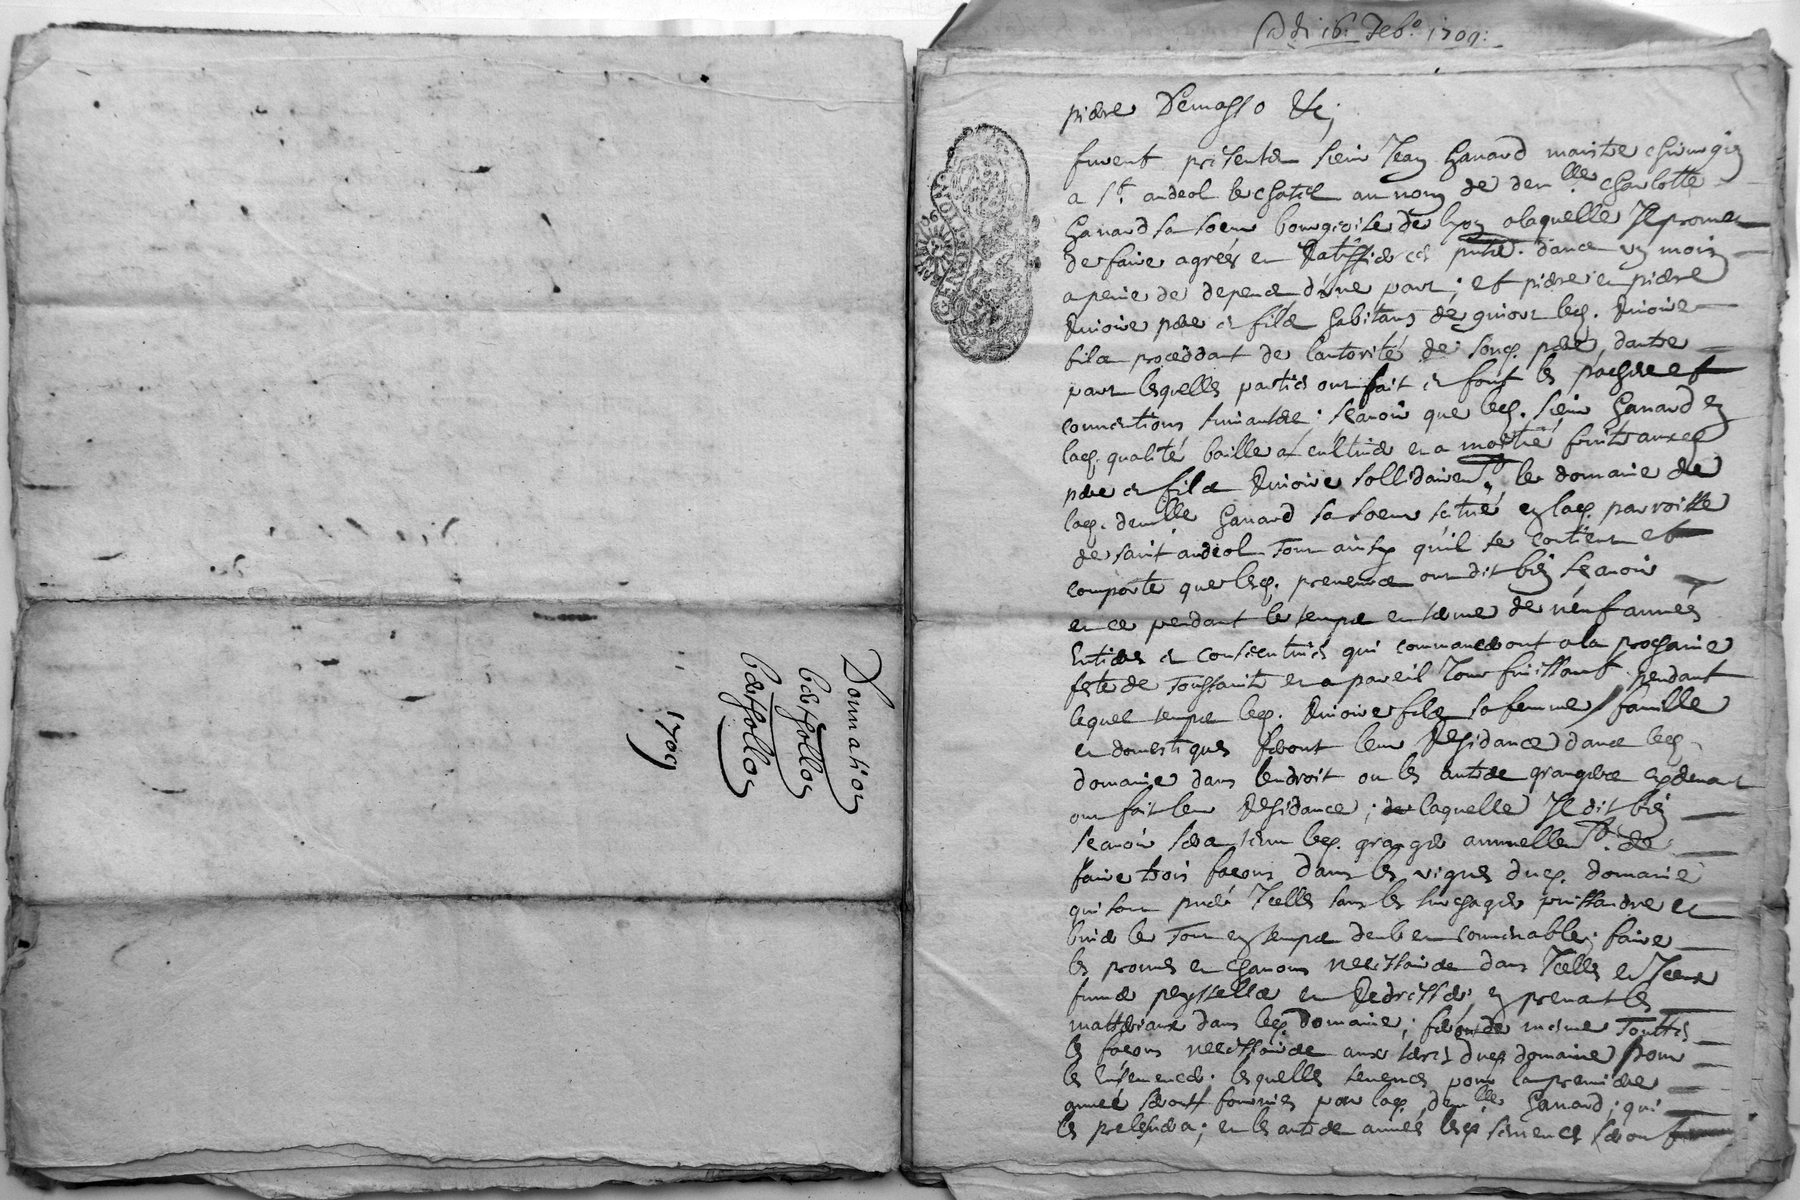 Donnation
1709
16. feb.º 1709:
pierre Demasso &c;
furent présents sieur Jean Ganard maistre chirurgien
a St. andeol le chatel au nom de demlle Charlotte
Ganard sa soeur bourgeoise de lyon a laquelle Il promet
de faire agréer et Ratiffier ces dans un mois
a peine de depens d'une part; et pierre et pierre
père et fils habitans de
fils proceddant de l'autorité de son père, dautre
part lesquelles parties ont fait et font les paches et
conventions suivantes; scavoir que led. sieur Ganard en
lad. qualité baille a cultiver et a moitié fruits
père et fils sollidairement le domaine de
lad. demlle Ganard sa soeur situé en lad. parroisse
de saint andeol tout ainsy qu'il se contient et
comporte que les preneurs ont dit bien scavoir
et ce pendant le temps et terme de neuf années
Entieres et consecutives qui commanceront a la prochaine
feste de Toussaints et a pareil Jour finissant pendant
lequel temps led. fils sa femme famille
et domestiques feront leur Residance dans led.
domaine dans lendroit ou les autres grangers
ont fait leur Residance; de laquelle Il dit bien
scavoir sera tenu led. granger annuellemt. de
faire trois façons dans les vignes dud. domaine
qui sont Icelles sans les surcharger et
biner le Tout en temps deub et convenable; faire
les provins et necessaires dans Icelles et Iceux
fumer et Redresser en prenant les
matteriaux dans led. domaine; de mesme Touttes
les façons necessaires aux terres dud. domaine pour
les Ensemencer; lesquelles semences pour la premiere
année seront fournies par lad. demlle Ganard; qui
les prelevera; et les autres années lesd. semences seront